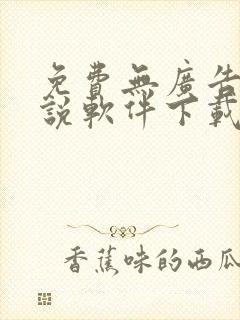 免費無廣告
說軟件下載
香蕉味的西瓜